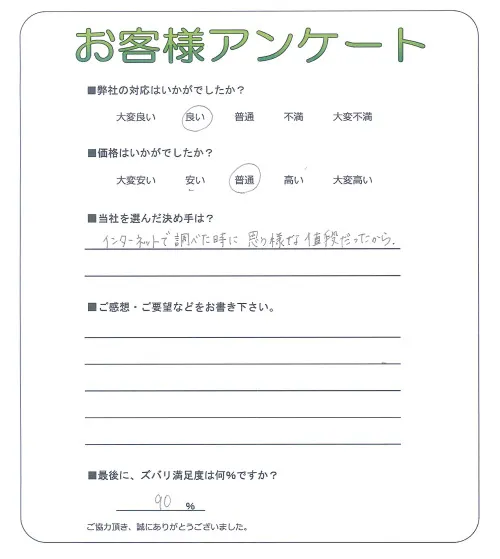 お客様アンケート
■弊社の対応はいかがでしたか？
大変良い 良い 普通 不満 大変不満
■価格はいかがでしたか？
大変安い 安い 普通 高い 大変高い
■当社を選んだ決め手は？
インターネットで調べた時に 思う様な値段だったから.
■ご感想・ご要望などをお書き下さい。
■最後に、ズバリ満足度は何％ですか？
90 ％
ご協力頂き、誠にありがとうございました。